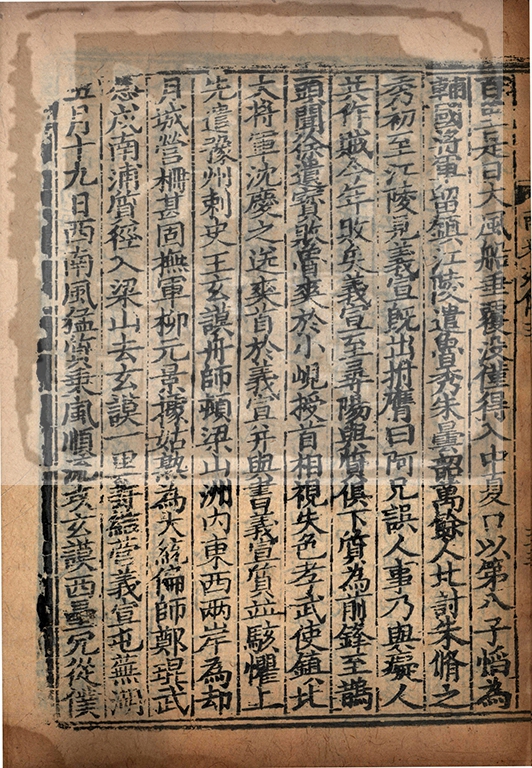 百里是日大風船垂覆没僅得入中夏口以第八子慆為
輔國將軍留鎮江陵遣魯秀朱曇韶萬餘人北討朱脩之
秀初至江陵見義宣既出拊膺曰阿兄誤人事乃與癡人
共作賊今年敗矣義宣至尋陽與質俱下質為前鋒至鵲
頭聞徐遺寳敗魯爽於小峴授首相視失色孝武使鎮北
大將軍沈慶之送爽首於義宣并與書義宣質並駭懼上
先遣豫州刺史王玄謨舟師頓梁山洲内東西兩岸為却
月城營柵甚固撫軍柳元景據姑熟為大統偏師鄭琨武
念戍南浦質徑入梁山去玄謨一里許結營義宣屯蕪湖
五月十九日西南風猛質乘風順流攻玄謨西壘冗從僕